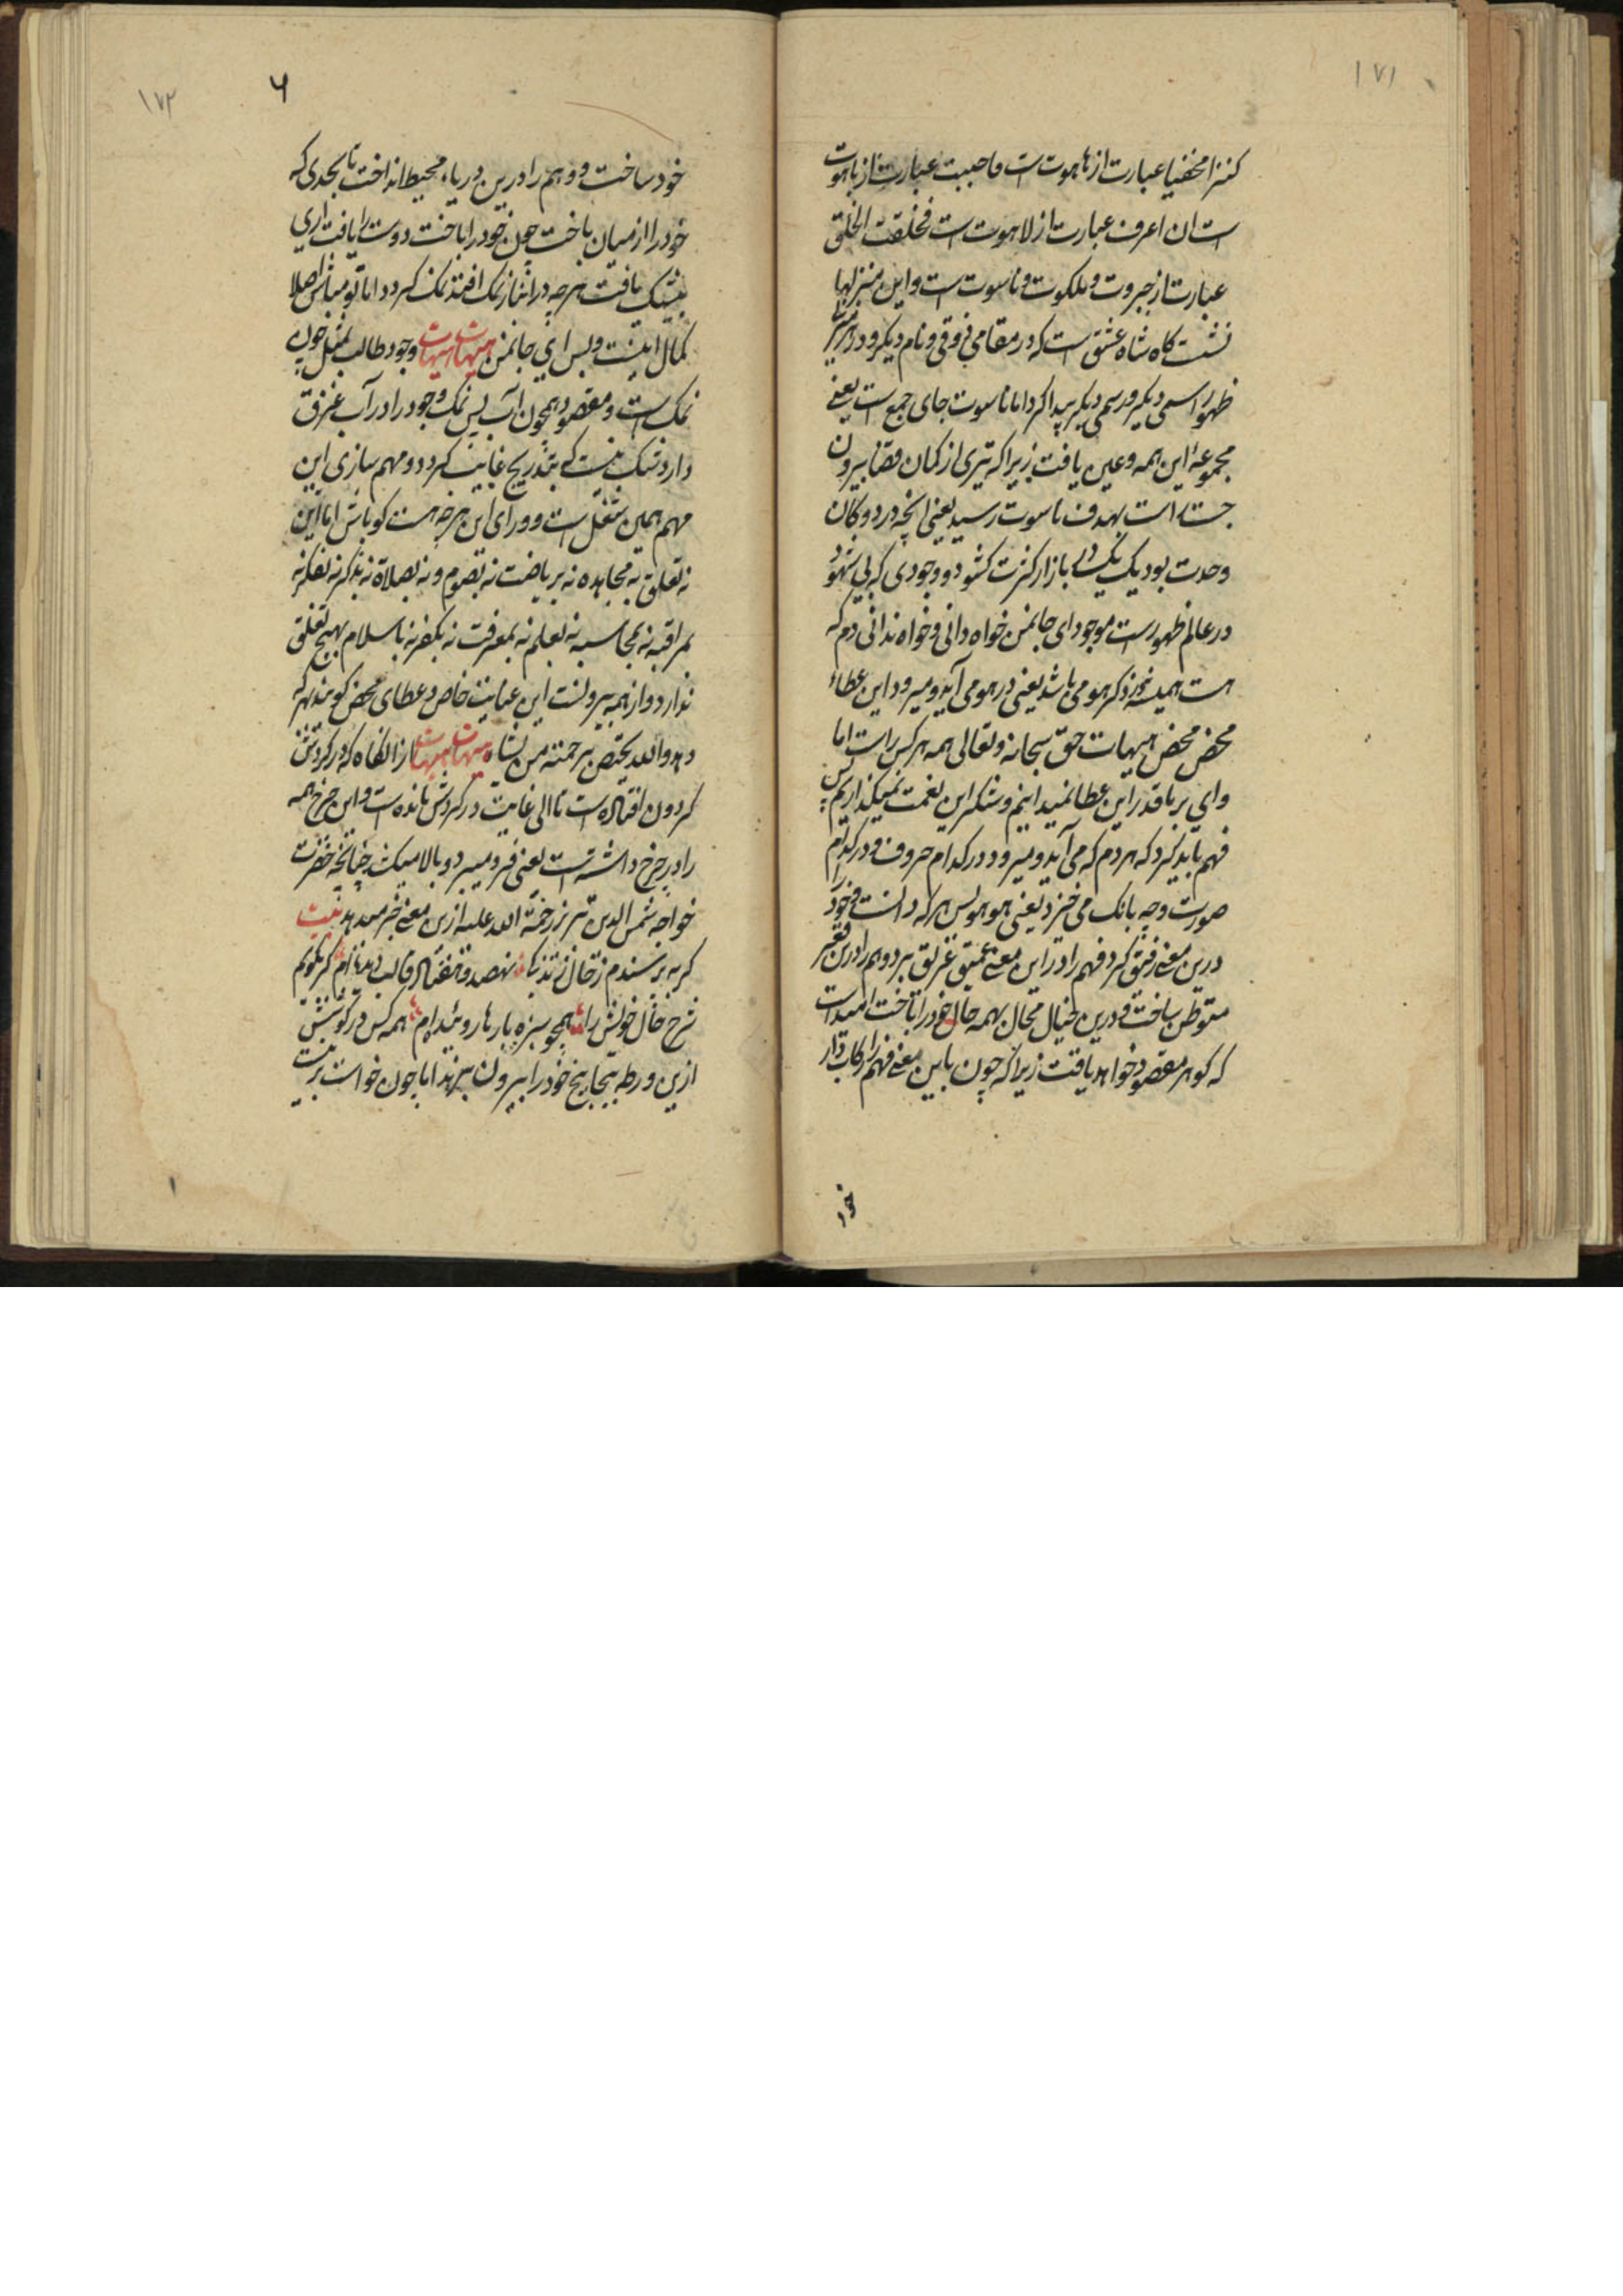 ۱۷۱
كنزا مخفيا عبارت از هاهوت است فاحببت عبارت از باهوت
است ان اعرف عبارت از لاهوت است فخلقت الخلق
عبارت از جبروت و ملکوت و ناسوت است و این منزلها
نشست کاه شاه عشق است که در مقامی ذوقی و نام دیکر و در هر منزل
ظهور اسمی دیکر و رسمی دیکر پیدا کرد اما ناسوت جای جمع است یعنی
مجموعهٔ این همه و عین یافت زیرا که تیری از کمان قضا بیرون
جسته است بهدف ناسوت رسید یعنی انچه در دوکان
وحدت بود یک یک در بازار کثرت کشود و وجودی که بی شهود
در عالم ظهور است موجود ای جانمن خواه دانی و خواه ندانی دم که
هست همیشه در ذکر هو می باشد یعنی در هو می آید و میرود این عطاء
محض محض هیهات حق سبحانه و تعالی همه هر کس راست اما
وای بر ما قدر این عطا نمیدانیم و شکر این نعمت نمیکذاریم پس
فهم باید کرد که هر دم که می آید و میرود در کدام حروف و در کدام
صورت و چه بانک می خیزد یعنی هو هو پس هر که دانست و خود را
درین معنی رفیق کرد فهم را در این معنی عمیق غریق برد و هم را درین قعر
متوطن ساخت و درین خیال محال بهمه حال خود را تاخت امید است
که کوهر مقصود خواهد یافت زیرا که چون باین معنی فهم را رکاب دار
خود
۱۷۲
۶
خود ساخت و وهم را درین دریاء محیط انداخت تا بحدی که
خود را از میان باخت چون خود را باخت دوست را یافت اری
بیشک یافت هرچه در انبار نمک افتد نمک کردد اما تو مباش اصلا
کمال اینست و بس ای جانمن هیهات هیهات وجود طالب بمثل چون
نمک است و مقصود همچون آب پس نمک وجود را در آب غرق
دارد شک نیست که بتدریج غایب کردد و مهم سازی این
مهم همین شغل است و ورای این هرچه هست کو باش اما این
نه تعلق به مجاهده نه بریاضت نه بصوم و نه بصلاة نه بذکر نه بفکر نه
بمراقبه نه بمحاسبه نه بعلم نه بمعرفت نه بکفر نه باسلام بهیچ تعلق
ندارد و از همه بیرونست این عنایت خاص و عطای محض کویند بهر که
دهد و الله یختص برحمته من یشاء هیهات هیهات از انکاه که در کردش
کردون افتاده است تا الی غایت در کردش مانده است و این چرخ همه
را در چرخ داشته است یعنی فرو میبرد و بالا میکشد چنانچه حضرت
خواجه شمس الدین تبریز رحمة الله علیه ازین معنی خبر میدهد بیت
کر به پرسندم ز حال زندکی نهصد و هفتاد قالب دیده ام کر بکویم
شرح حال خویش را همچو سبزه بارها روئیده ام همه کس در کوشش
ازین ورطه پیچاپیچ خود را بیرون برند اما چون خواست